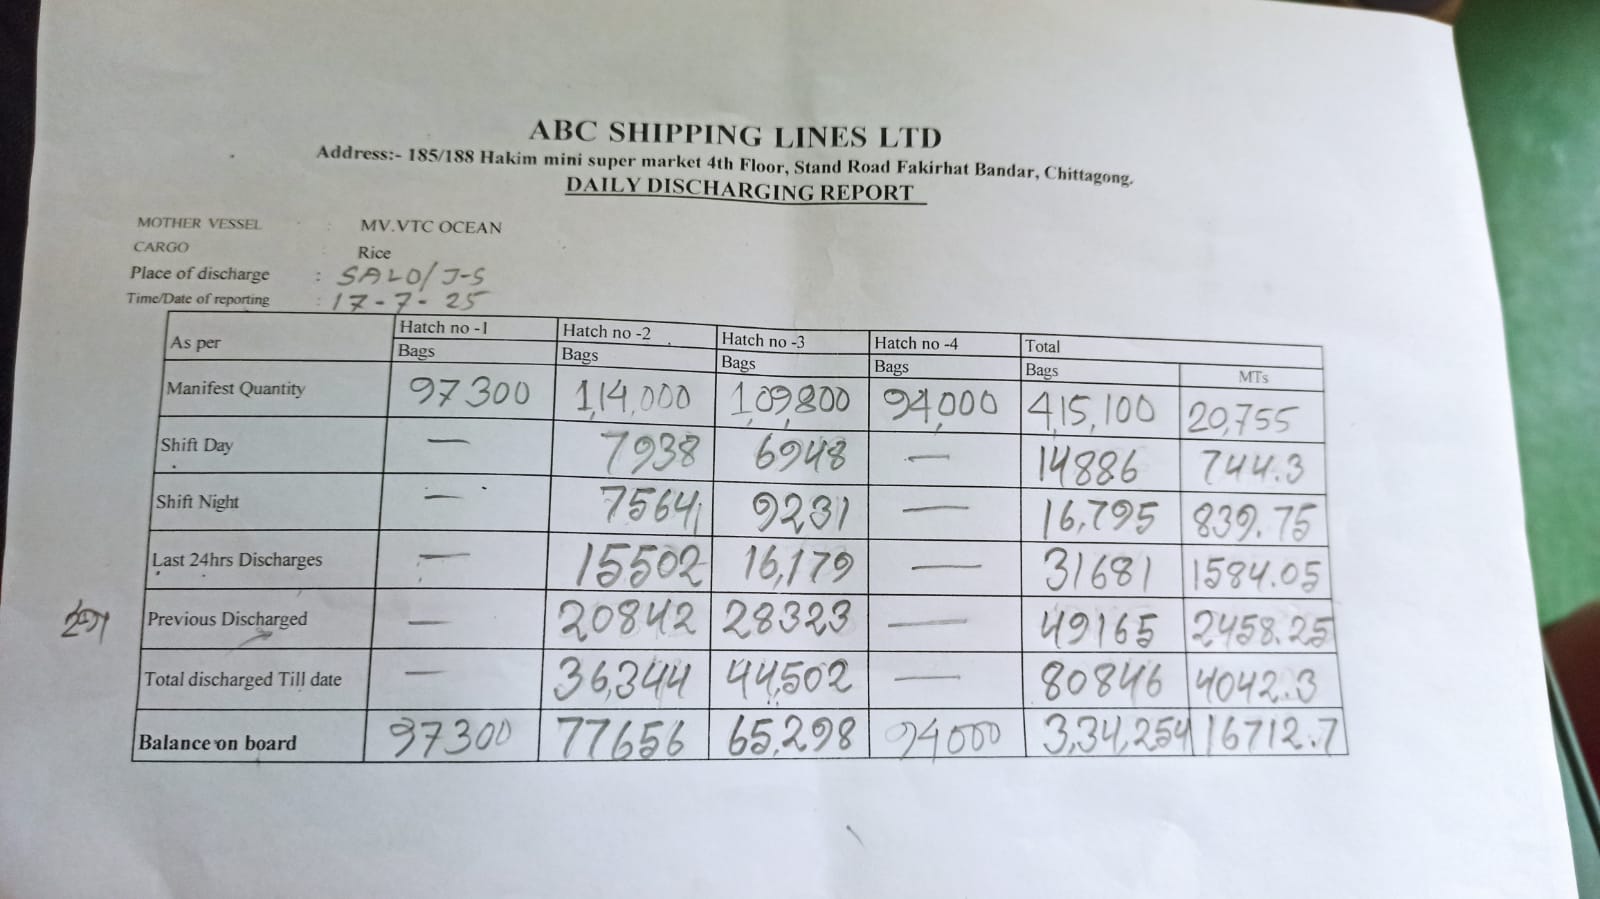 ABC SHIPPING LINES LTD
Address:- 185/188 Hakim mini super market 4th Floor, Stand Road Fakirhat Bandar, Chittagong.
DAILY DISCHARGING REPORT
MOTHER VESSEL : MV.VTC OCEAN
CARGO : Rice
Place of discharge : SALO/J-S
Time/Date of reporting : 17-7-25
As per Hatch no -1 Hatch no -2 Hatch no -3 Hatch no -4 Total
Bags Bags Bags Bags Bags MTs
Manifest Quantity 97300 1,14,000 1,09,800 94,000 4,15,100 20,755
Shift Day — 7938 6948 — 14886 744.3
Shift Night — 7564 9231 — 16,795 839.75
Last 24hrs Discharges — 15502 16,179 — 31681 1584.05
Previous Discharged — 20842 28323 — 49165 2458.25
Total discharged Till date — 36,344 44,502 — 80846 4042.3
Balance on board 97300 77656 65,298 94000 3,34,254 16712.7